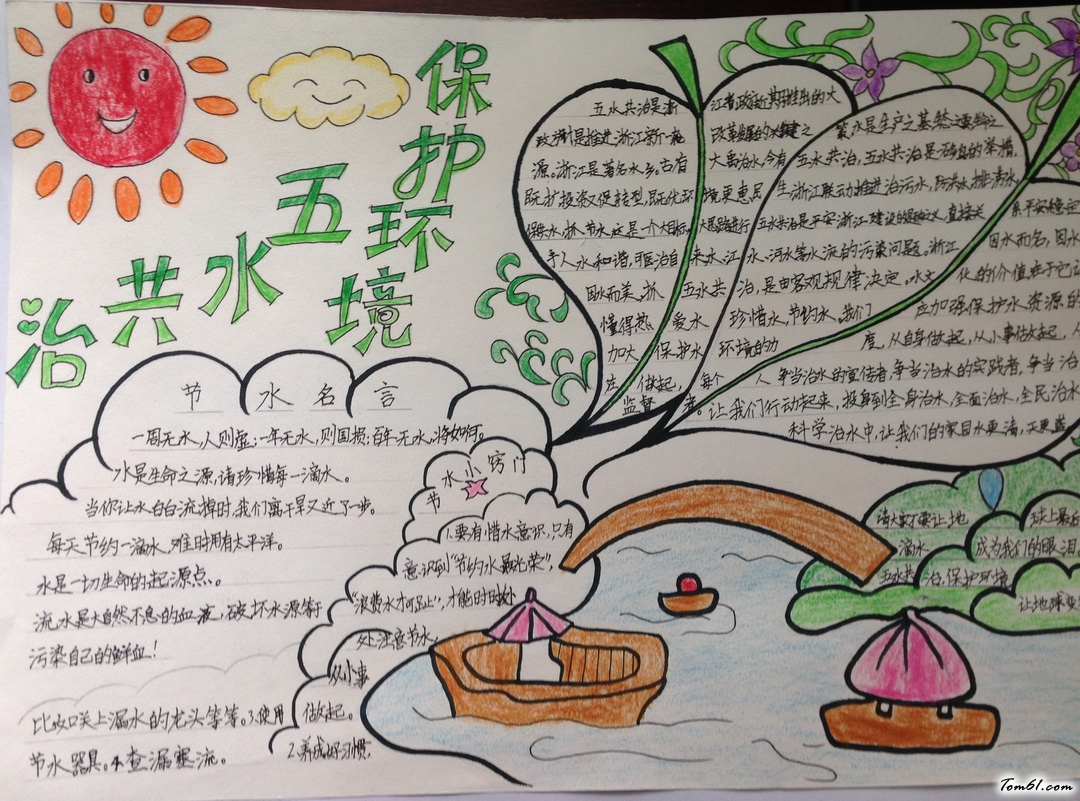 保护环境
五水共治
节水名言
一周无水，人则虚；一年无水，则国损；百年无水，将如何。
水是生命之源，请珍惜每一滴水。
当你让水白白流掉时，我们离干旱又近了一步。
每天节约一滴水，难时用有太平洋。
水是一切生命的起源点、。
流水是大自然不息的血液，破坏水源等于
污染自己的鲜血！
节水小窍门
1.要有惜水意识，只有
意识到"节约水最光荣"，
"浪费水才可耻"，才能时时处
处注意节水，
从小事
做起。
2.养成好习惯，
比如关上漏水的龙头等等。3.使用
节水器具。4.查漏塞流。
五水共治是浙江省政府近期推出的大
政方针，是推进浙江新一轮改革发展的关键之策。水是生产之基
源。浙江是著名水乡，古有大禹治水，今有五水共治，五水共治是
既扩投资又促转型，既优环境更惠民 生。浙江联动推进治污水，防洪水，排涝水，
保供水，抓节水，这是一个大目标 五水共治是平安浙江建设的题中之义，直接关系平安稳定
于人水和谐，可医治自来水、江水、河水等水流的污染问题。浙江因水而名，因水
因水而美，抓五水共治，是由客观规律决定。水文化的价值在于它让
懂得热爱水珍惜水，节约水。我们应加强保护水资源的
加大保护水环境的力度，从自身做起，从小事做起，从
左做起，每个人争当治水的宣传者，争当治水的实践者，争当治
监督者。让我们行动起来，投身到全身治水，全面治水，全民治水
科学治水中，让我们的家园水更清，天更蓝
请大家不要让地球上最后
滴水成为我们的眼泪
五水共治，保护环境
让地球
Tom61.com